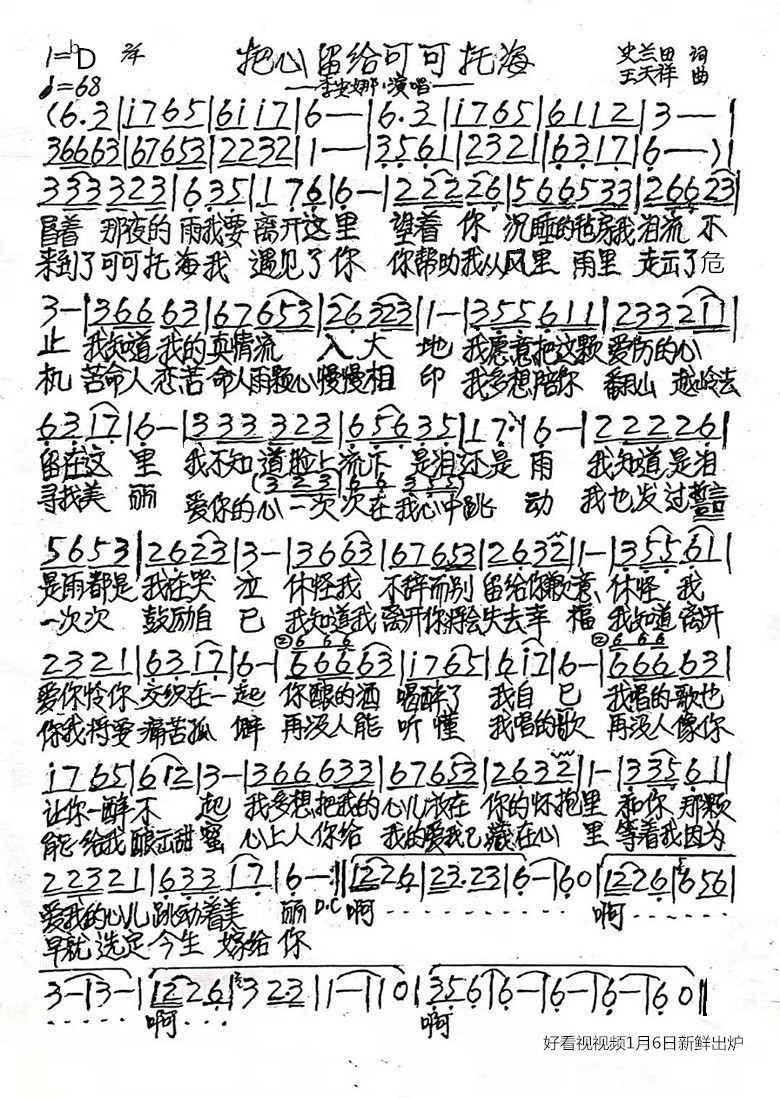 1=♭D 2/4 把心留给可可托海 史兰田 词
♩=68 —李安娜·演唱— 王天祥 曲
(6·3|1765|6117|6——|6·3|1765|6112|3——|
36663|67653|2232|1——|3561|2321|6317|6——)|
333323|635|176|6—|222226|566533|26623|
冒着 那夜的雨我要离开这里 望着 你 沉睡的毡房我泪流 不
来到了可可托海我 遇见了你 你帮助我从风里 雨里 走出了危
3—|36663|67653|26323|1—|355611|233211|
止 我知道我的真情流 入大 地 我愿意把这颗爱伤的心
机 苦命人恋苦命人两颗心慢慢相 印 我多想陪你 翻山 越岭去
6317|6—|333323|65635|17·|6—|222226|
留在这 里 我不知道脸上流下 是泪还是 雨 我知道是泪
(323|66355)
寻找美 丽 爱你的心一次次在我心中跳 动 我也发过誓言
5653|2623|3—|3663|67653|2632|1—|35561|
是雨都是 我在哭 泣 休怪我 不辞而别 留给你歉意 休怪 我
一次次 鼓励自 己 我知道我离开你将会失去幸 福 我知道离开
22321|6317|6—|66663|1765|617|6—|666631|
爱你怜你 交织在一起 你酿的酒 喝醉了 我自 己 我唱的歌也
你我将受痛苦孤 僻 再没人能 听 懂 我唱的歌 再没人像你
1765|612|3—|366633|67653|2632|1—|33561|
让你一醉不 起 我多想把我的心儿放在 你的怀抱里 和你 那颗
能给我酿出甜蜜 心上人你给 我的爱我已藏在心 里 等着我因为
22321|63317|6—:‖1226|23·23|6—|60|1226|656|
爱我的心儿跳动着美 丽 D.C 啊 啊
早就选定今生 嫁给你
3—|3—|1226|323|1—|10|356|6—|6—|6—|60‖
啊 啊
好看视视频1月6日新鲜出炉